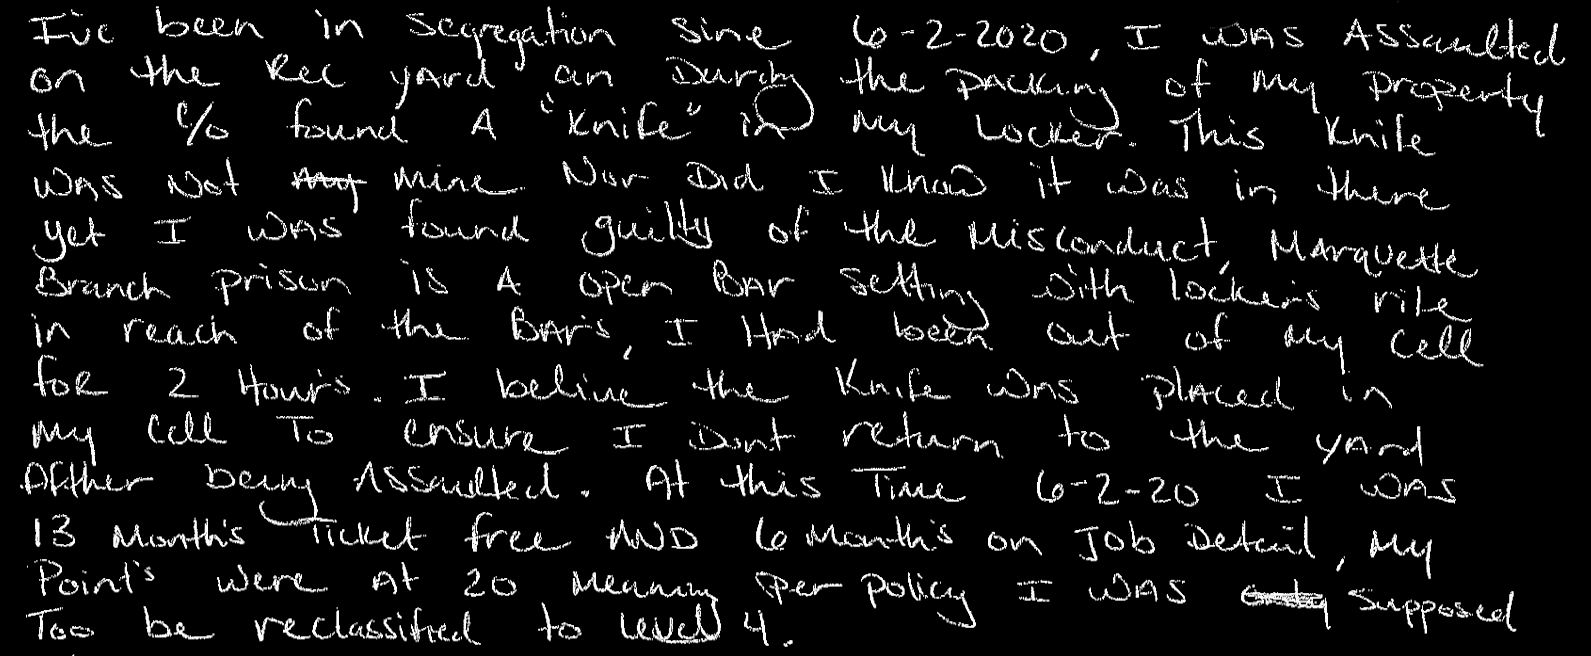 I've been in segregation sine 6-2-2020, I WAS ASSaulted
on the Rec yARd an During the packing of my property
the c/o found A "Knife" in my Locker. This Knife
WAS Not my mine. Nor Did I Know it was in there
yet I WAS found guilty of the Misconduct, MARquette
Branch prison is A open BAr setting with locker's rite
in reach of the BAr's, I HAd been out of my cell
foR 2 Hour's. I belive the Knife WAS plAced in
my Cell To ensure I Dont return to the yARd
Afther being ASSaulted. At this Time 6-2-20 I WAS
13 Month's Ticket free AND 6 Month's on Job Detail, My
Point's were At 20 Meaning per policy I WAS only supposed
Too be reclassified to level 4.